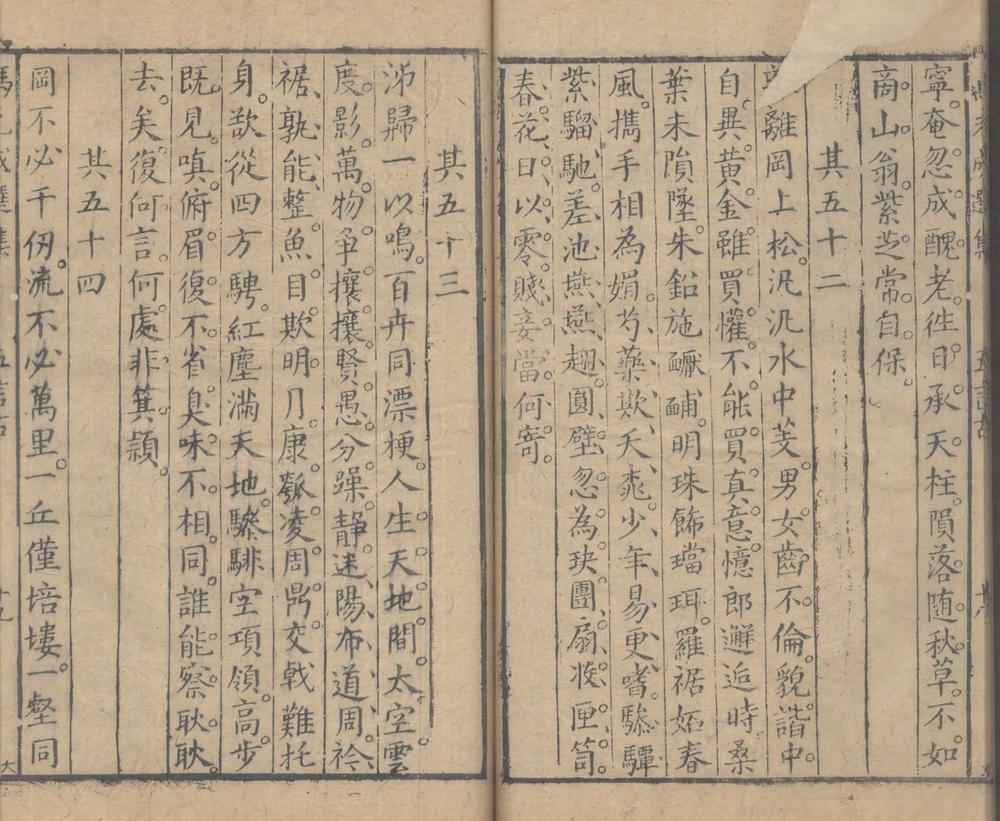 寧奄忽成醜老徃日承天柱隕落随秋草不如
商山翁紫芝常自保
其五十二
離岡上松汎汎水中芰男女齒不倫貌諧中
自異黃金雖買懽不能買真意憶郎邂逅時桑
葉未隕墜朱鉛施䩉明珠餙璫珥羅裾妬春
風携手相為媚芍藥欺夭桃少年易更嗜驂驔
紫騮馳差池燕燕翅圓璧忽為玦團扇次匣笥
春花日以零賤妾當何寄
其五十三
沸歸一以鳴百卉同漂梗人生天地間太空雲
度影萬物争攘攘賢愚分躁静迷陽布道周衿
裾孰能整魚目欺明月康瓠凌周鼎交戟難托
身欲從四方騁紅塵滿天地驂騑空項領高步
既見嗔俯眉復不省臭味不相同誰能察耿耿
去矣復何言何處非箕潁
其五十四
岡不必千仞流不必萬里一丘僅培塿一壑同